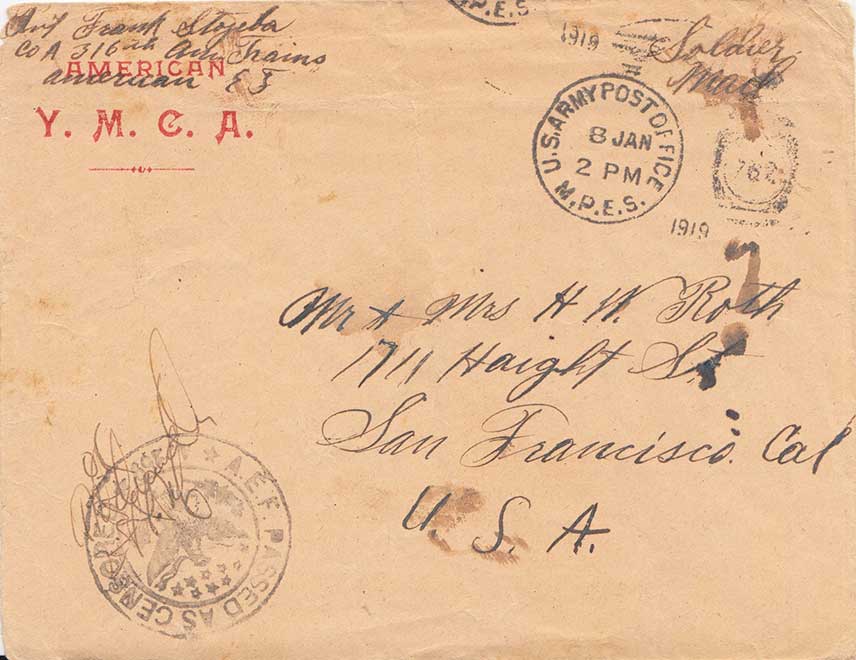 Pvt Frank Stojeba
Co A 316th Am. Trains
american E F
AMERICAN
Y. M. C. A.
M.P.E.S.
1919
Soldier
Mail
U.S. ARMY POST OFFICE
8 JAN
2 PM
M.P.E.S.
762
1919
Mr & Mrs H W. Roth
1711 Haight St
San Francisco. Cal
U. S. A.
A.E.F. PASSED AS CENSORED